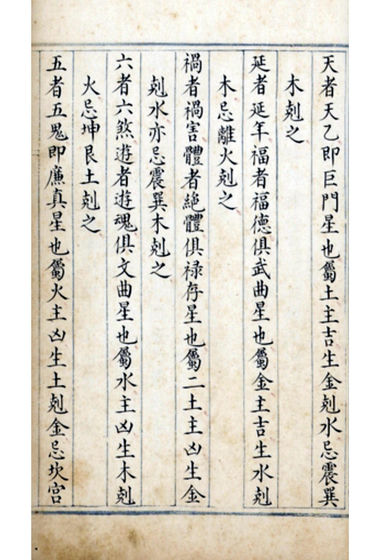 天者天乙即巨門星也屬土主吉生金剋水忌震巽
木剋之
延者延年福者福德俱武曲星也屬金主吉生水剋
木忌離火剋之
禍者禍害體者絶體俱禄存星也屬二土主凶生金
剋水亦忌震巽木剋之
六者六煞遊者遊魂俱文曲星也屬水主凶生木剋
火忌坤艮土剋之
五者五鬼即廉真星也屬火主凶生土剋金忌坎宫